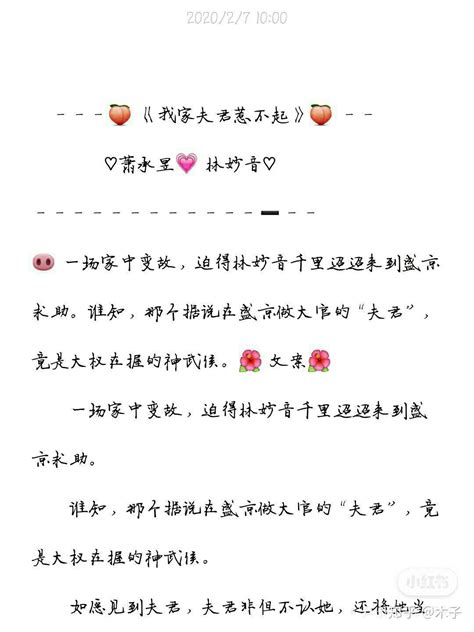 2020/2/7 10:00
---🍑《我家夫君惹不起》🍑--
♡萧承昱💗林妙音♡
------------➖--
🐽 一场家中变故，迫得林妙音千里迢迢来到盛京
求助。谁知，那个据说在盛京做大官的“夫君”，
竟是大权在握的神武侯。🌺文案🌺
一场家中变故，迫得林妙音千里迢迢来到盛
京求助。
谁知，那个据说在盛京做大官的“夫君”，竟
是大权在握的神武侯。
如愿见到夫君，夫君非但不认她，还将她当
小红书
知乎 @木子